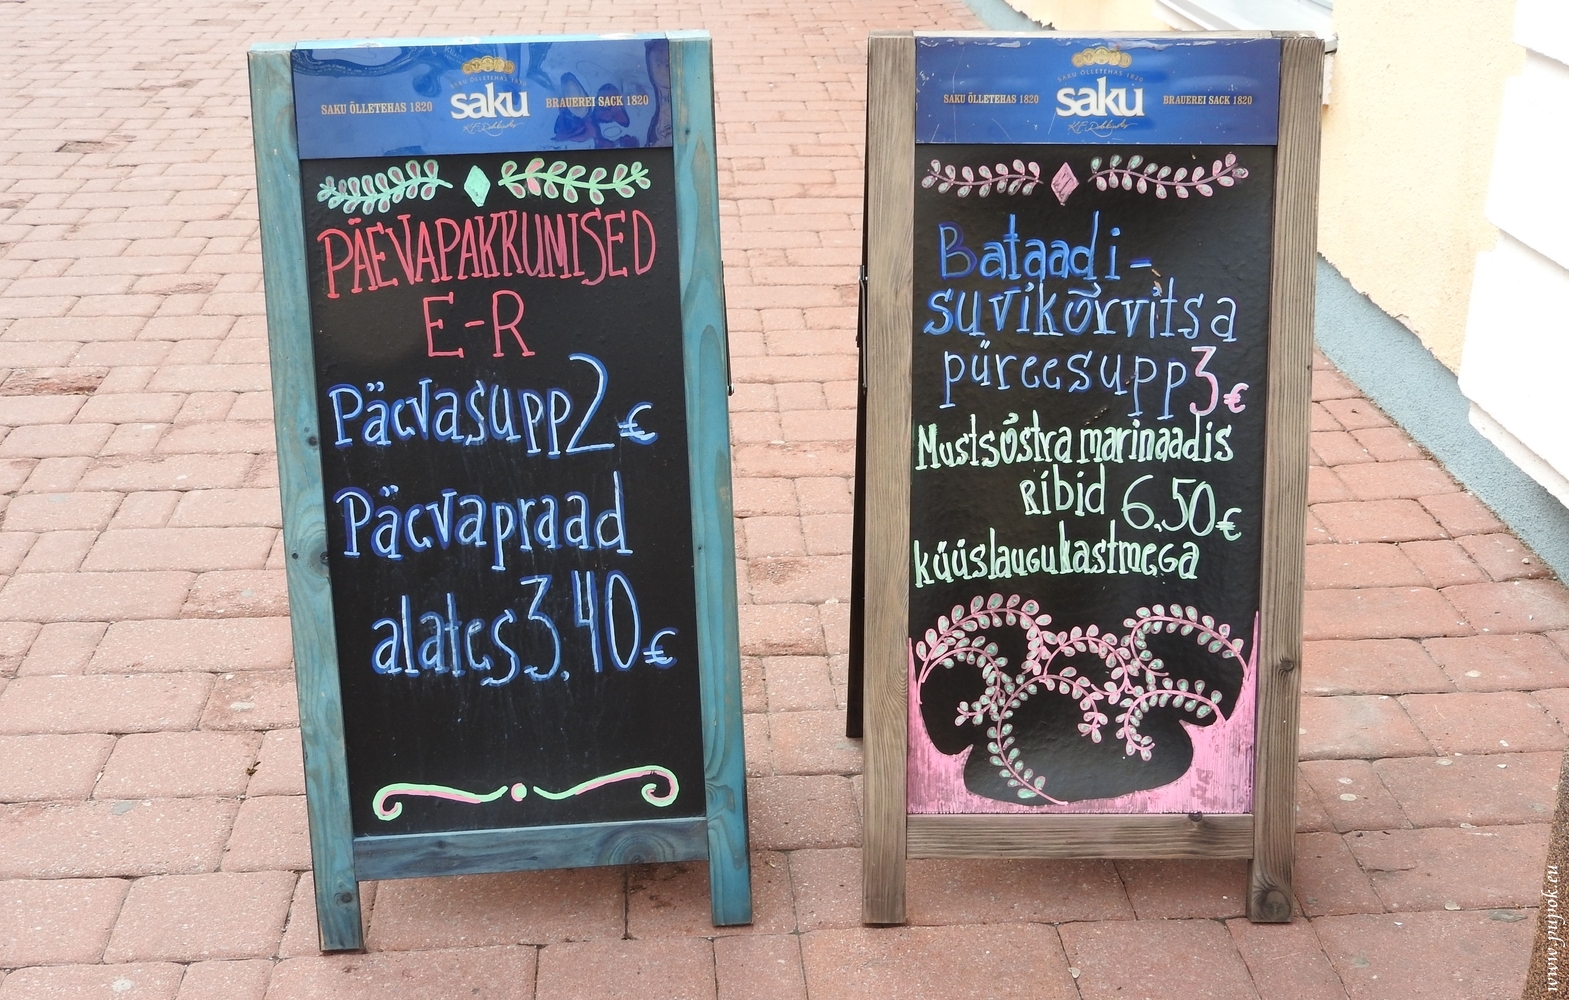 SAKU ÕLLETEHAS 1820
saku
BRAUEREI SACK 1820
PÄEVAPAKKUMISED
E-R
Päevasupp 2 €
Päevapraad
alates 3.40 €
SAKU ÕLLETEHAS 1820
SAKU ÕLLETEHAS 1820
saku
BRAUEREI SACK 1820
Bataadi-
suvikõrvitsa
püreesupp 3 €
Mustsõstra marinaadis
Ribid 6.50 €
küüslaugukastmega
www.pufpok.eu